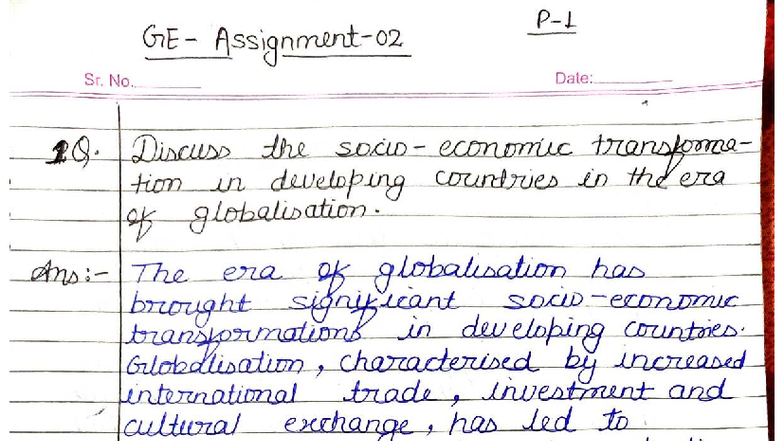 P-1
GE- Assignment-02
Sr. No.
Date:
1Q. Discuss the socio-economic transforma-
tion in developing countries in the era
of globalisation.
Ans:- The era of globalisation has
brought significant socio-economic
transformations in developing countries.
Globalisation, characterised by increased
international trade, investment and
cultural exchange, has led to